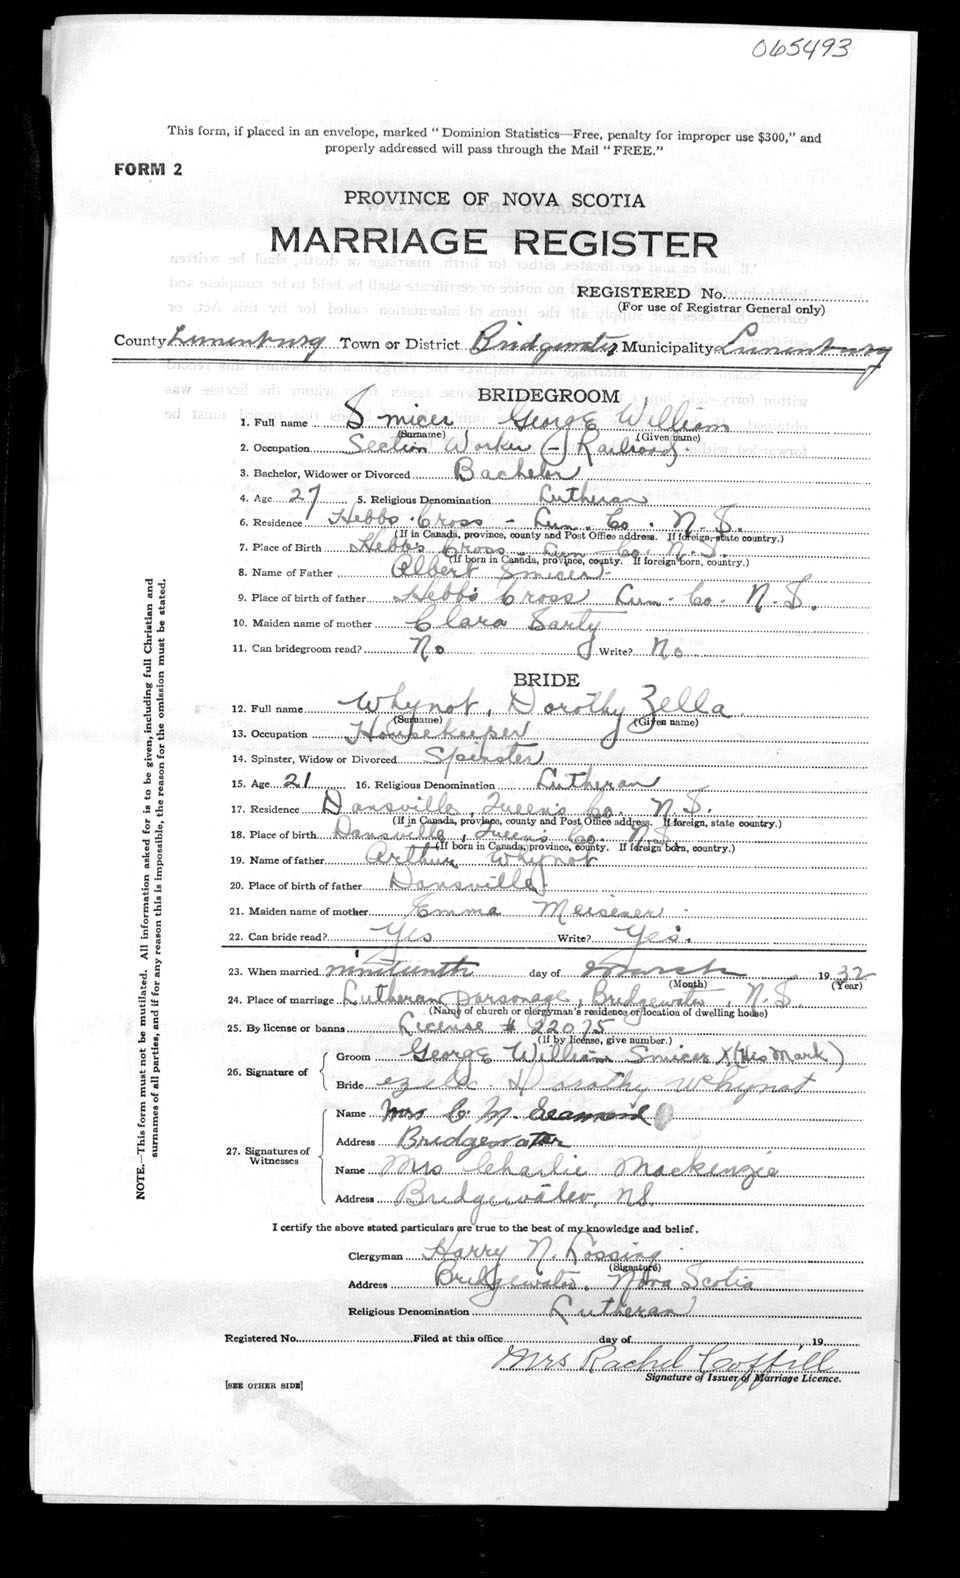 065493
This form, if placed in an envelope, marked "Dominion Statistics—Free, penalty for improper use $300," and
properly addressed will pass through the Mail "FREE."
FORM 2
PROVINCE OF NOVA SCOTIA
MARRIAGE REGISTER
REGISTERED No.
(For use of Registrar General only)
County Lunenburg Town or District Bridgewater Municipality Lunenburg
BRIDEGROOM
1. Full name Smicer George William
(Surname) (Given name)
2. Occupation Section Worker - Railroad
3. Bachelor, Widower or Divorced Bachelor
4. Age 27 5. Religious Denomination Lutheran
6. Residence Hebbs Cross - Lun. Co. N.S.
(If in Canada, province, county and Post Office address. If foreign, state country.)
7. Place of Birth Hebbs Cross Lun Co. N.S.
(If born in Canada, province, county. If foreign born, country.)
8. Name of Father Albert Smicer
9. Place of birth of father Hebbs Cross Lun. Co. N.S.
10. Maiden name of mother Clara Sarty
11. Can bridegroom read? No Write? No
BRIDE
12. Full name Whynot, Dorothy Zella
(Surname) (Given name)
13. Occupation Housekeeper
14. Spinster, Widow or Divorced Spinster
15. Age 21 16. Religious Denomination Lutheran
17. Residence Dansville, Queen's Co. N.S.
(If in Canada, province, county and Post Office address. If foreign, state country.)
18. Place of birth Dansville, Queen's Co. N.S.
(If born in Canada, province, county. If foreign born, country.)
19. Name of father Arthur Whynot
20. Place of birth of father Dansville
21. Maiden name of mother Emma Meisener
22. Can bride read? Yes Write? Yes.
23. When married ninteenth day of March 1932
(Month) (Year)
24. Place of marriage Lutheran parsonage, Bridgewater, N.S.
(Name of church or clergyman's residence or location of dwelling house)
25. By license or banns License # 22075
(If by license, give number.)
26. Signature of
Groom George William Smicer X (His Mark)
Bride Dorothy Whynot
27. Signatures of Witnesses
Name Mrs C. M.
Address Bridgewater
Name Mrs Charlie Mackenzie
Address Bridgewater, NS.
I certify the above stated particulars are true to the best of my knowledge and belief.
Clergyman Harry N. Lossing
(Signature)
Address Bridgewater, Nova Scotia
Religious Denomination Lutheran
Registered No. Filed at this office day of , 19
Mrs Rachel Coffill
Signature of Issuer of Marriage Licence.
[SEE OTHER SIDE]
NOTE.—This form must not be mutilated. All information asked for is to be given, including full Christian and
surnames of all parties, and if for any reason this is impossible, the reason for the omission must be stated.